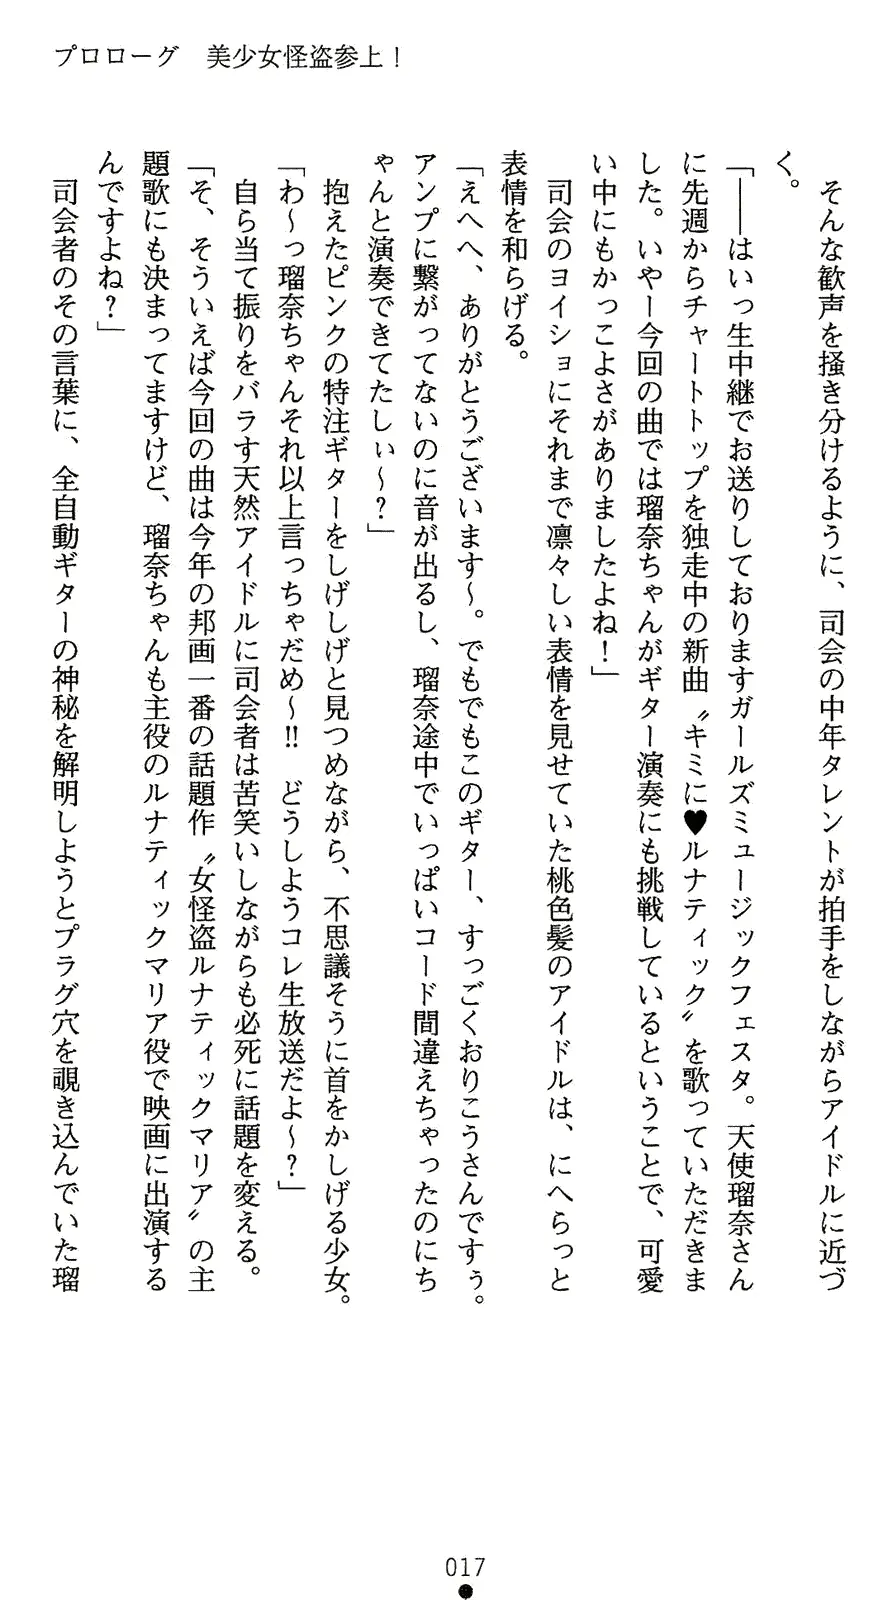 プロローグ　美少女怪盗参上！
　そんな歓声を掻き分けるように、司会の中年タレントが拍手をしながらアイドルに近づ
く。
「――はいっ生中継でお送りしておりますガールズミュージックフェスタ。天使瑠奈さん
に先週からチャートトップを独走中の新曲〝キミに♥ルナティック〟を歌っていただきま
した。いやー今回の曲では瑠奈ちゃんがギター演奏にも挑戦しているということで、可愛
い中にもかっこよさがありましたよね！」
　司会のヨイショにそれまで凛々しい表情を見せていた桃色髪のアイドルは、にへらっと
表情を和らげる。
「えへへ、ありがとうございます～。でもでもこのギター、すっごくおりこうさんですぅ。
アンプに繋がってないのに音が出るし、瑠奈途中でいっぱいコード間違えちゃったのにち
ゃんと演奏できてたしぃ～？」
　抱えたピンクの特注ギターをしげしげと見つめながら、不思議そうに首をかしげる少女。
「わ～っ瑠奈ちゃんそれ以上言っちゃだめ～!!　どうしようコレ生放送だよ～？」
　自ら当て振りをバラす天然アイドルに司会者は苦笑いしながらも必死に話題を変える。
「そ、そういえば今回の曲は今年の邦画一番の話題作〝女怪盗ルナティックマリア〟の主
題歌にも決まってますけど、瑠奈ちゃんも主役のルナティックマリア役で映画に出演する
んですよね？」
　司会者のその言葉に、全自動ギターの神秘を解明しようとプラグ穴を覗き込んでいた瑠
017